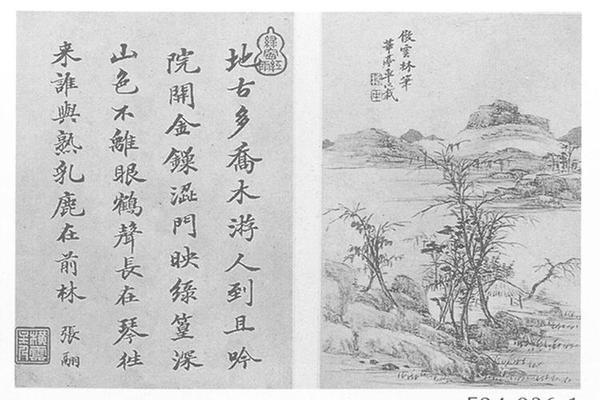 倣雲林筆
地古多喬木游人到且吟
院開金鏁澀門映綠篁深
山色不離眼鶴聲長在琴徃
来誰與熟乳鹿在前林
張